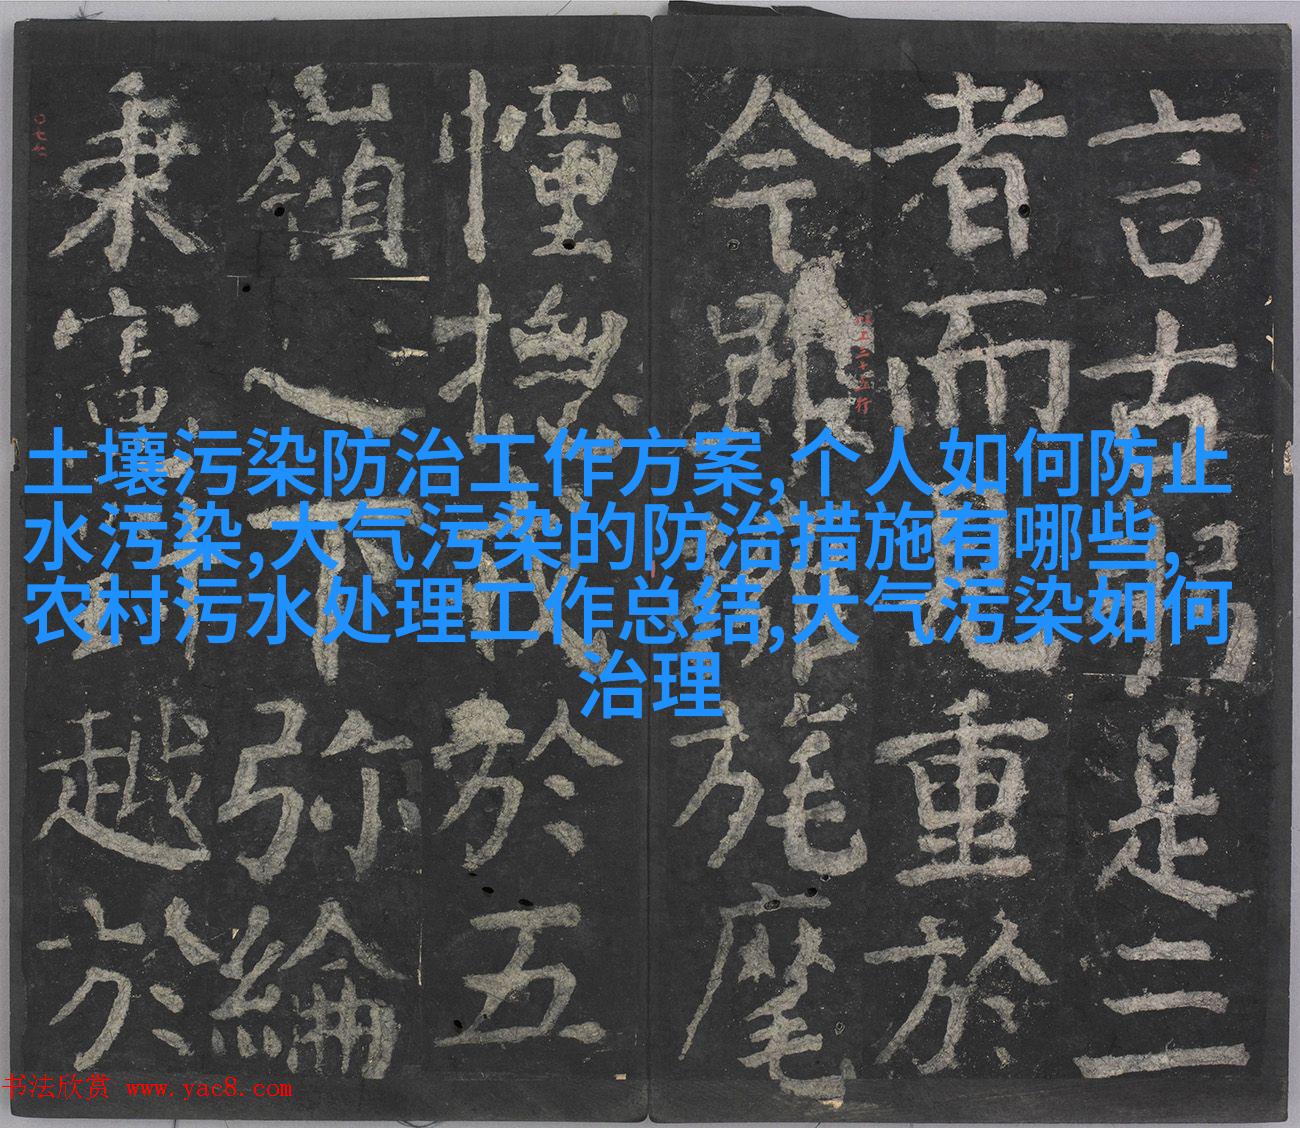 土壤污染防治工作方案,个人如何防止
水污染,大气污染的防治措施有哪些,
农村污水处理工作总结,大气污染如何
治理
言古是三
者而重於
今旄麾
憧撫於五
嶺之下弥綸
秉越於
书法欣赏 www.yac8.com